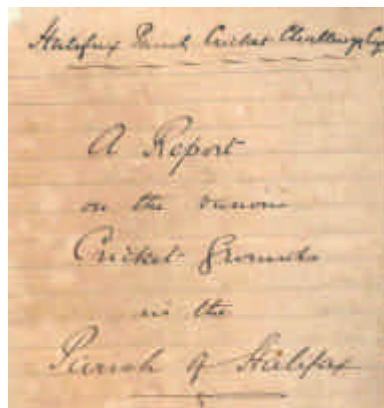 Halifax Parish Cricket Challenge Cup
A Report
on the various
Cricket Grounds
in the
Parish of Halifax